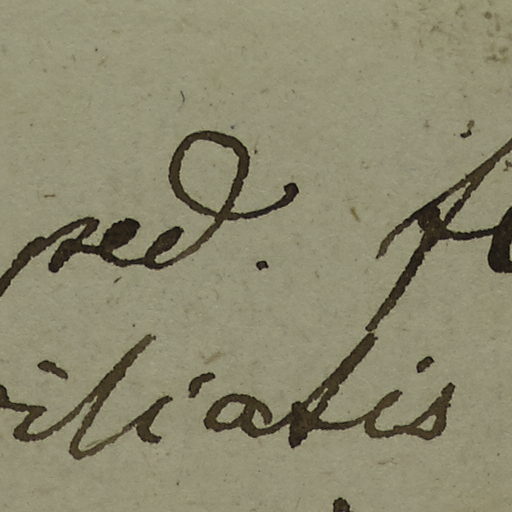 ped. fo
iliatis